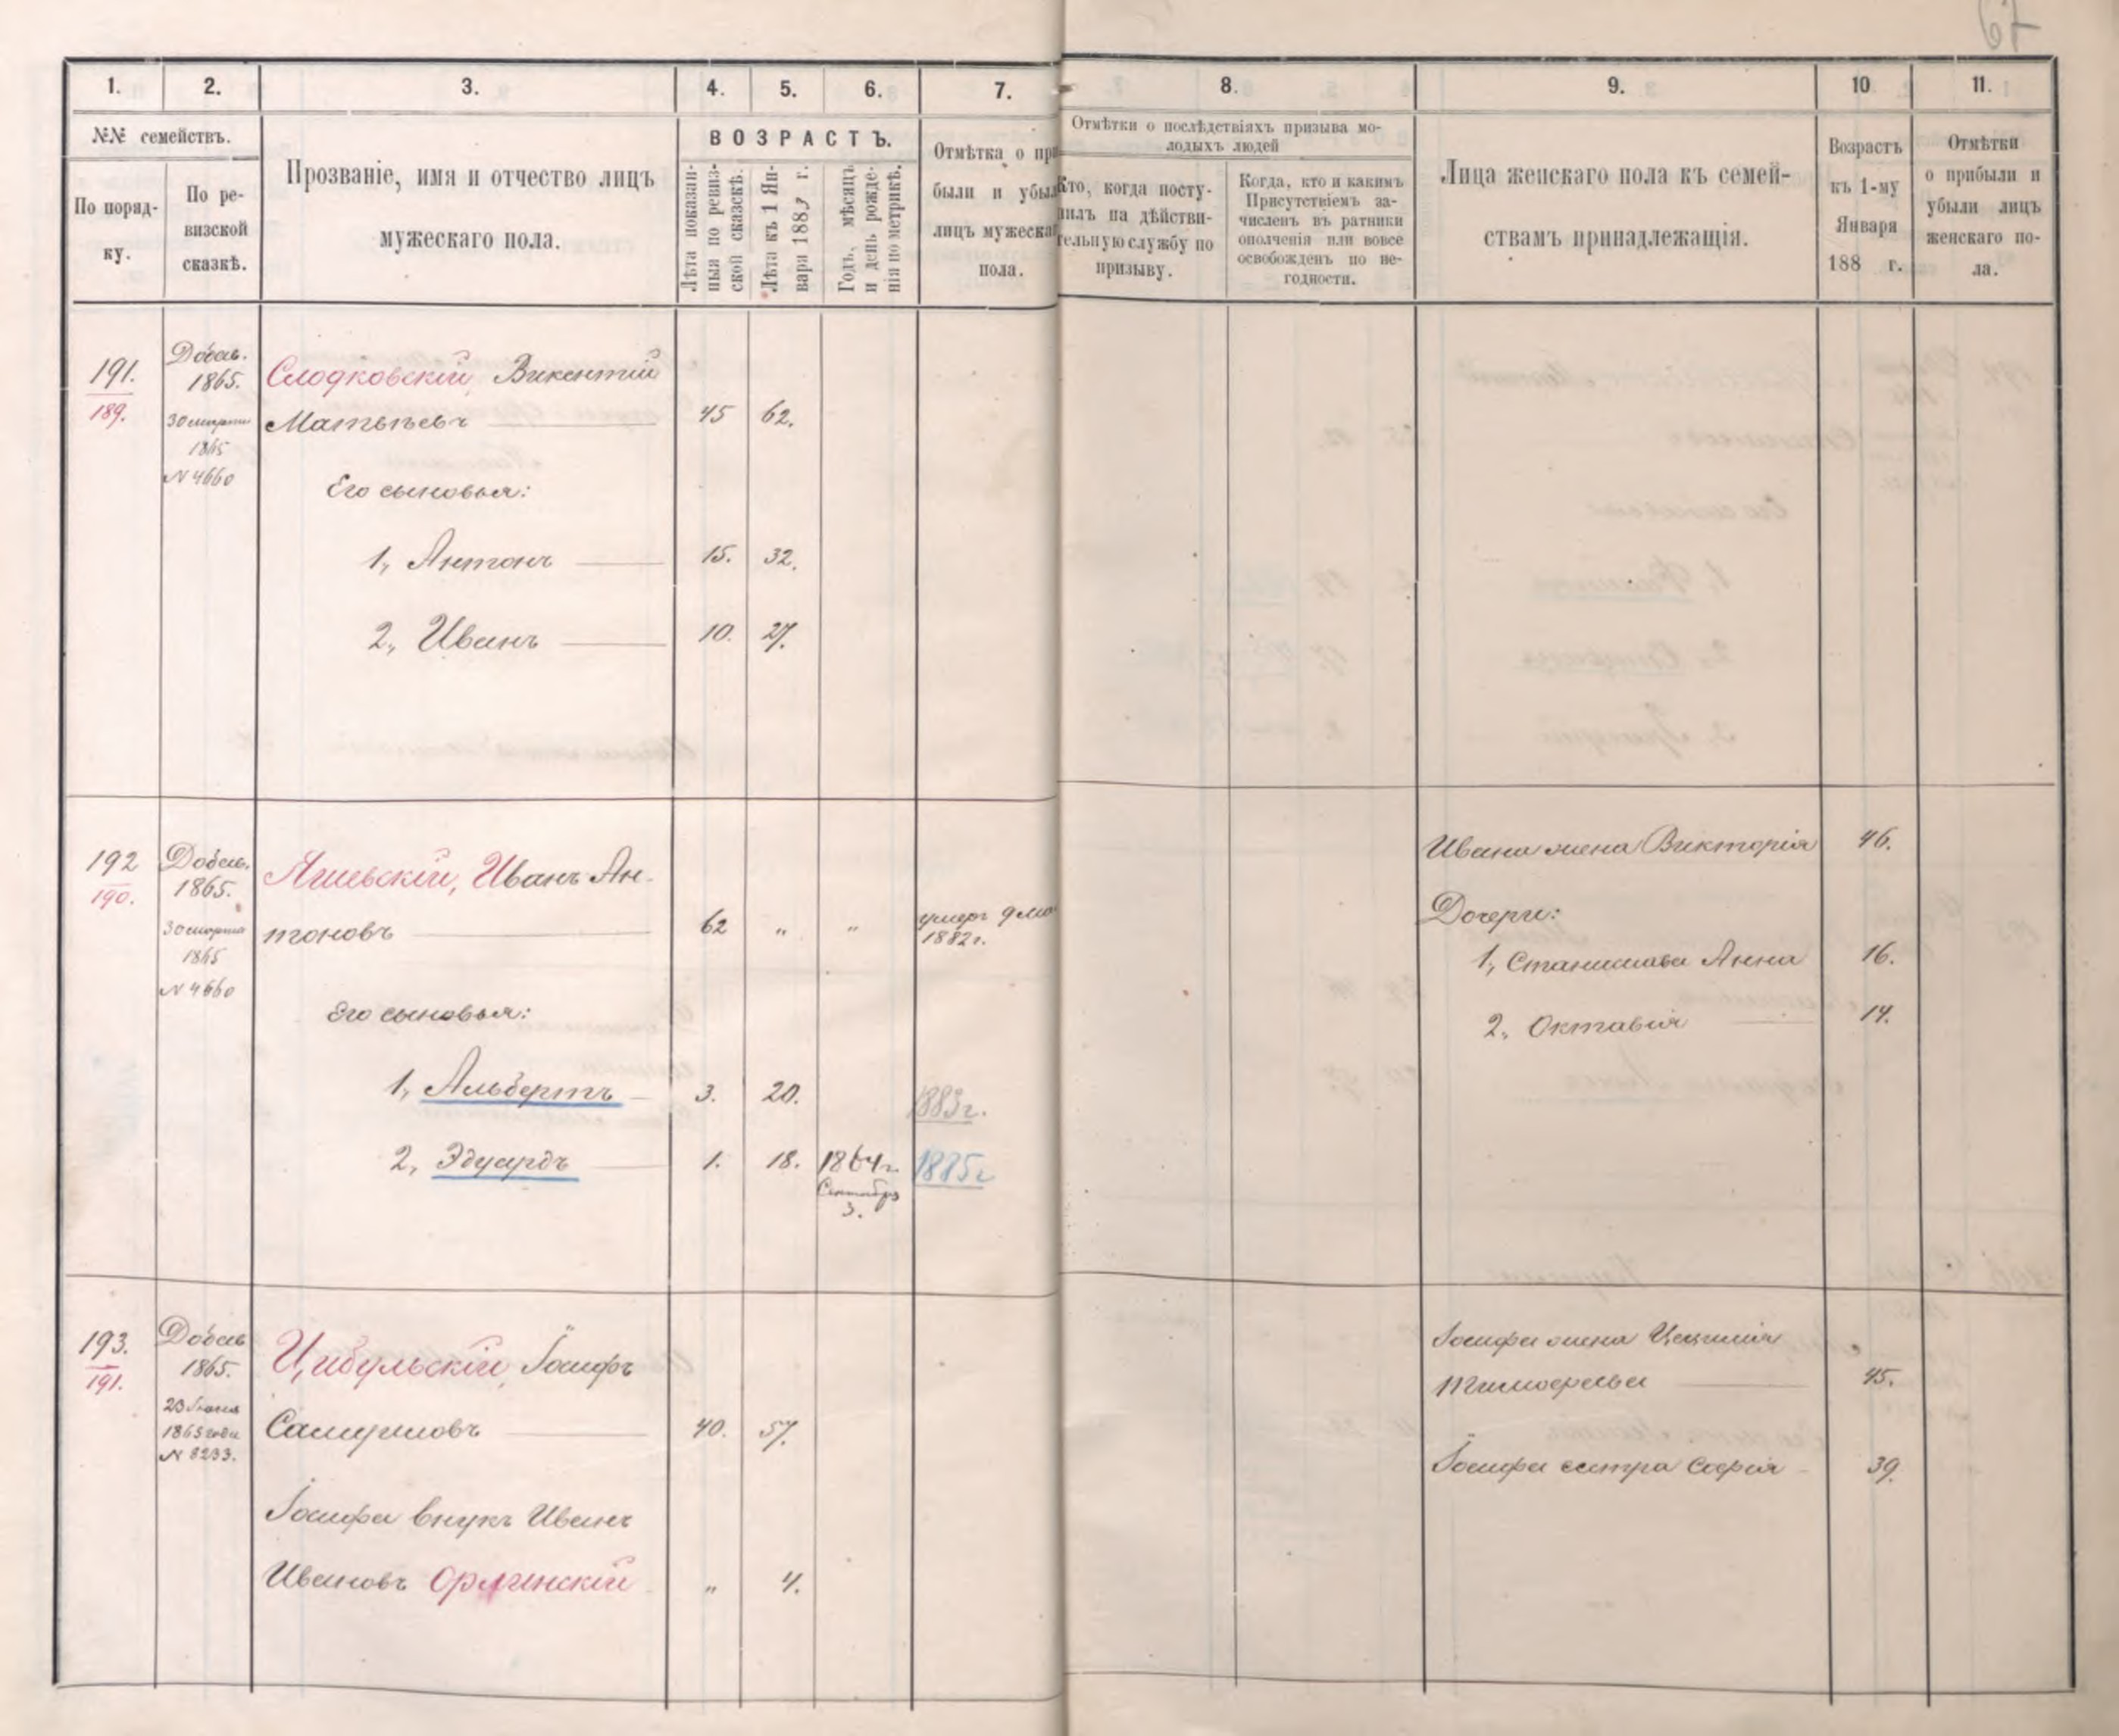 67
1. 2. 3. 4. 5. 6. 7. 8. 9. 10 11.
№№ семействъ.
По поряд-
ку.
По ре-
визской
сказкѣ.
Прозваніе, имя и отчество лицъ
мужескаго пола.
ВОЗРАСТЪ.
Лѣта показан-
ныя по ревиз-
ской сказскѣ.
Лѣта къ 1 Ян-
варя 1883 г.
Годъ, мѣсяцъ
и день рожде-
нія по метрикѣ.
Отмѣтка о при
были и убыл
лицъ мужескаг
пола.
Отмѣтки о послѣдствіяхъ призыва мо-
лодыхъ людей
Кто, когда посту-
пилъ на дѣйстви-
тельную службу по
призыву.
Когда, кто и какимъ
Присутствіемъ за-
численъ въ ратники
ополченія или вовсе
освобожденъ по не-
годности.
Лица женскаго пола къ семей-
ствамъ принадлежащія.
Возрастъ
къ 1-му
Января
188 г.
Отмѣтки
о прибыли и
убыли лицъ
женскаго по-
ла.
191.
189.
Добав.
1865.
30 марта
1865
N 4660
Слодковскій, Викентій
Матвѣевъ 45 62.
Его сыновья:
1, Антонъ 15. 32.
2, Иванъ 10. 27.
192
190.
Добав.
1865.
30 марта
1865
N 4660
Ягіевскій, Иванъ Ан-
тоновъ 62 „ „
умеръ 9 ма
1882 г.
Его сыновья:
1, Альбертъ 3. 20. 1883 г.
2, Эдуардъ 1. 18. 1864 г. 1885 г
Сентября
3.
Ивана жена Викторія 46.
Дочери:
1, Станислава Анна 16.
2, Октавія 14.
193.
191.
Добав
1865.
23 Іюня
1865 года
N 8233.
Цибульскій, Іосифъ
Самуиловъ 40. 57.
Іосифа внукъ Иванъ
Ивановъ Орлинскій „ 4.
Іосифа жена Цецилія
Тимофеева 45.
Іосифа сестра Софія 39.